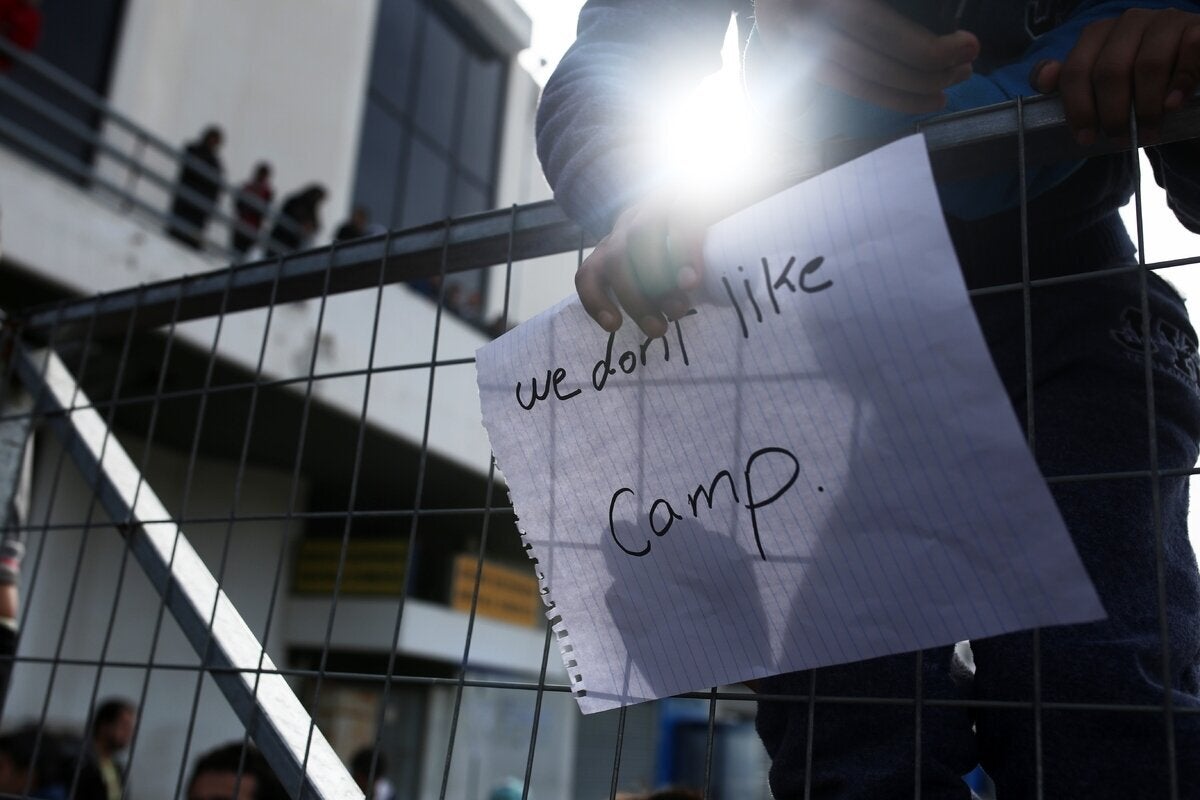 we dont like
Camp.